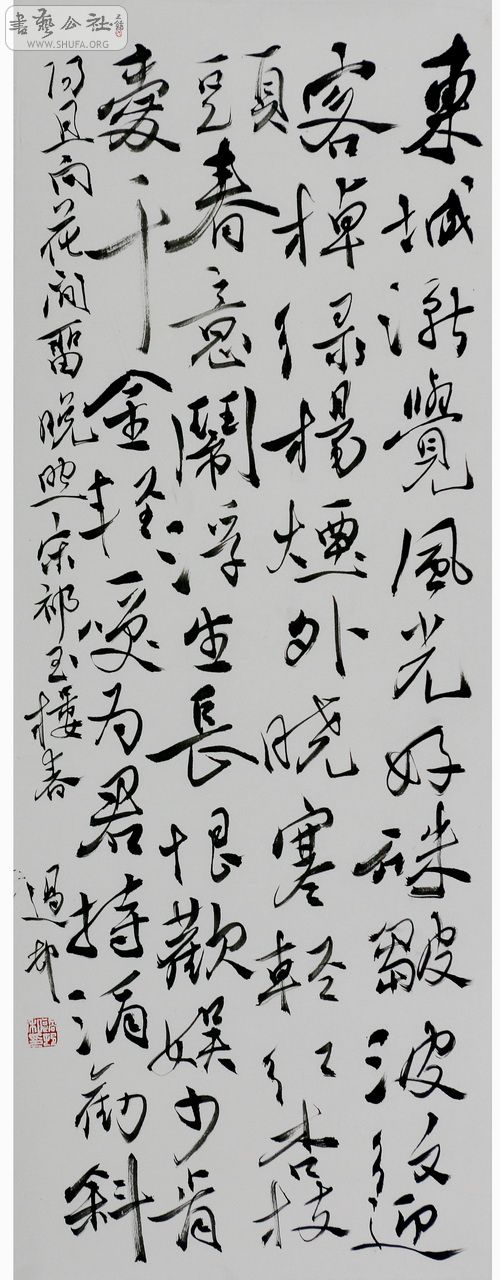 書藝公社
WWW.SHUFA.ORG
東城漸覺風光好縠皺波紋迎
客棹綠楊煙外晓寒輕紅杏枝
頭春意鬧浮生長恨歡娛少肯
愛千金輕一笑为君持酒勸斜
阳且向花間畱晚照宋祁玉樓春